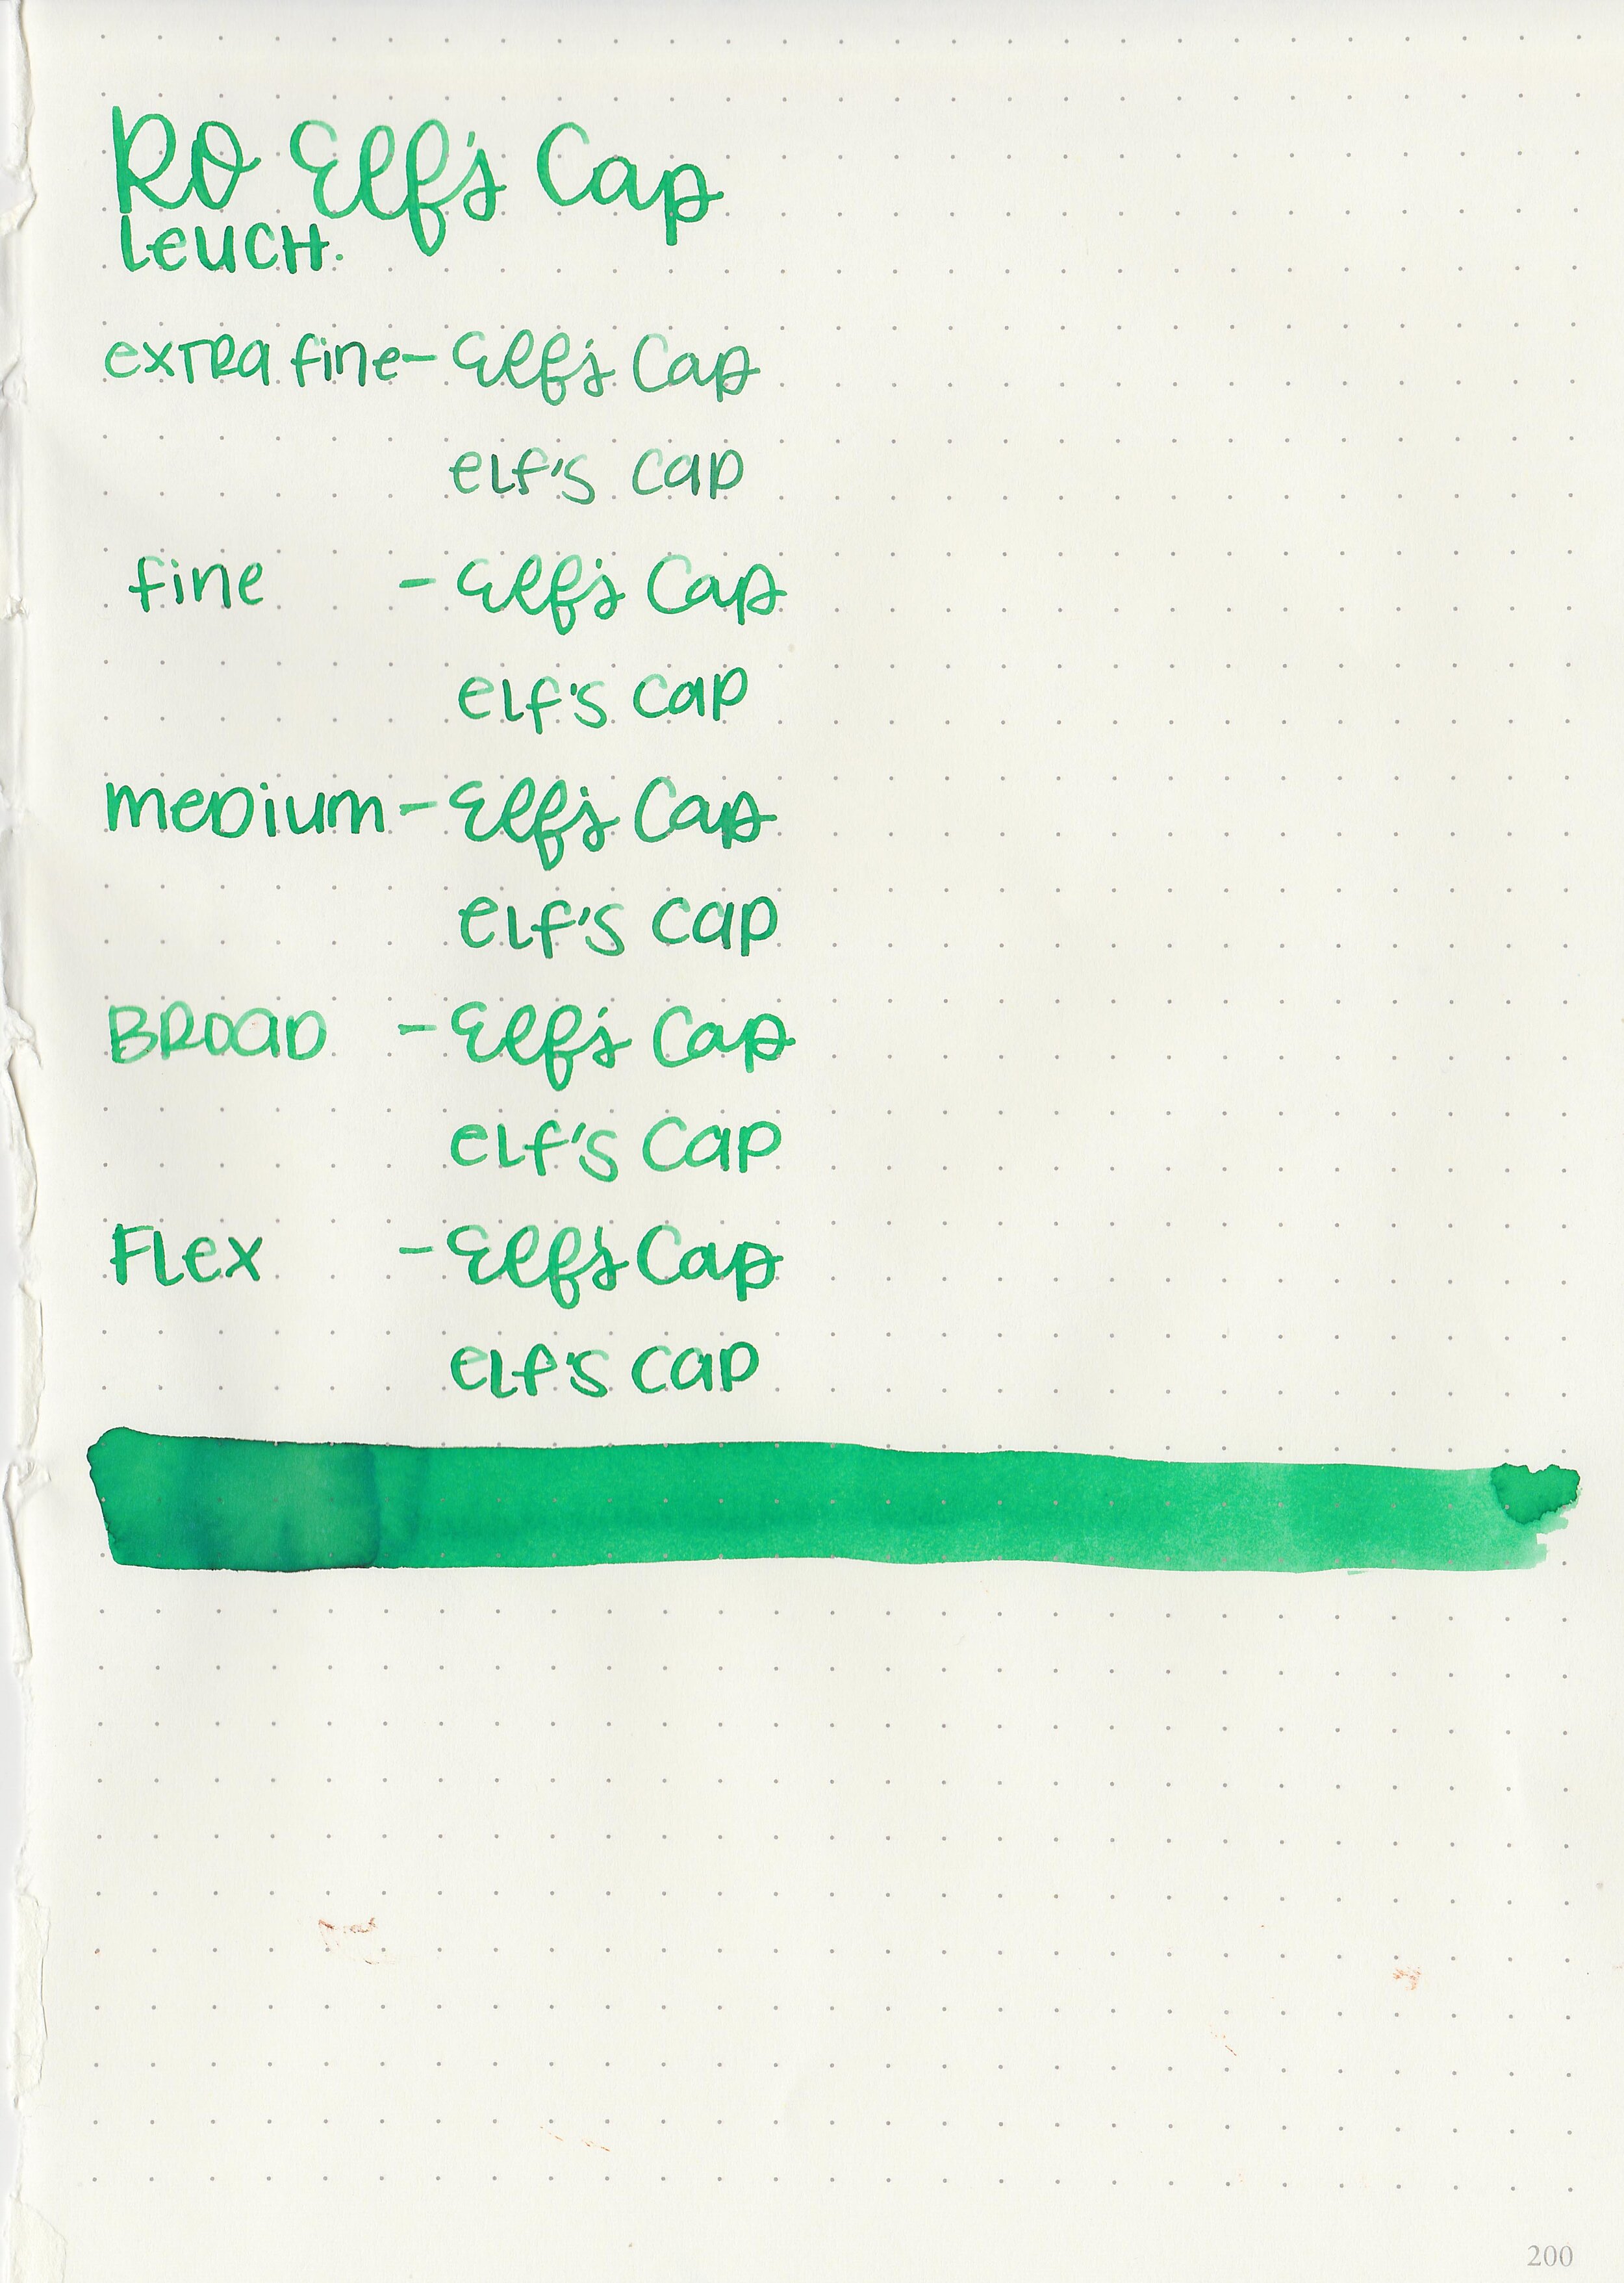 RO Elf's Cap
Leuch.
extra fine - Elf's Cap
elf's cap
fine - Elf's Cap
elf's cap
medium - Elf's Cap
elf's cap
Broad - Elf's Cap
elf's cap
Flex - Elf's Cap
elf's cap
200